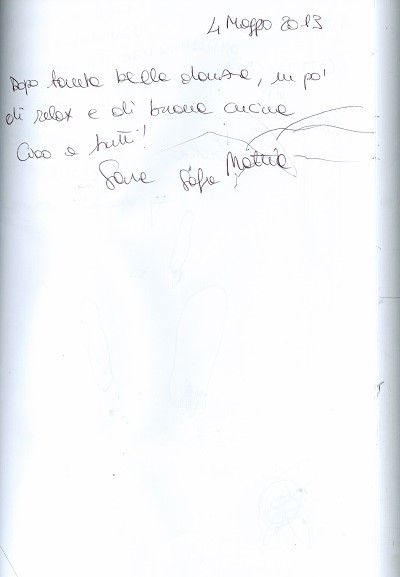 4 Maggio 2013
Dopo tanta bella danza, un po'
di relax e di buona cucina
Ciao a tutti!
Sara Sofia Mattia